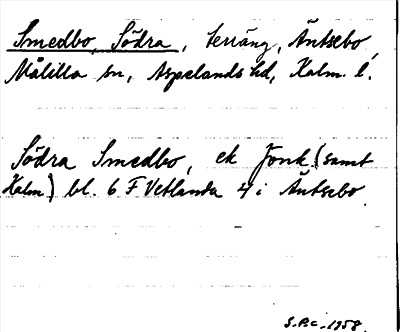 Smedbo, Södra, terräng, Äntsebo,
Målilla sn, Aspelands hd, Kalm. l.
Södra Smedbo, ek Jonk (samt
Kalm) bl. 6 F Vetlanda 4 i Äntsebo.
S.P.c. 1958.